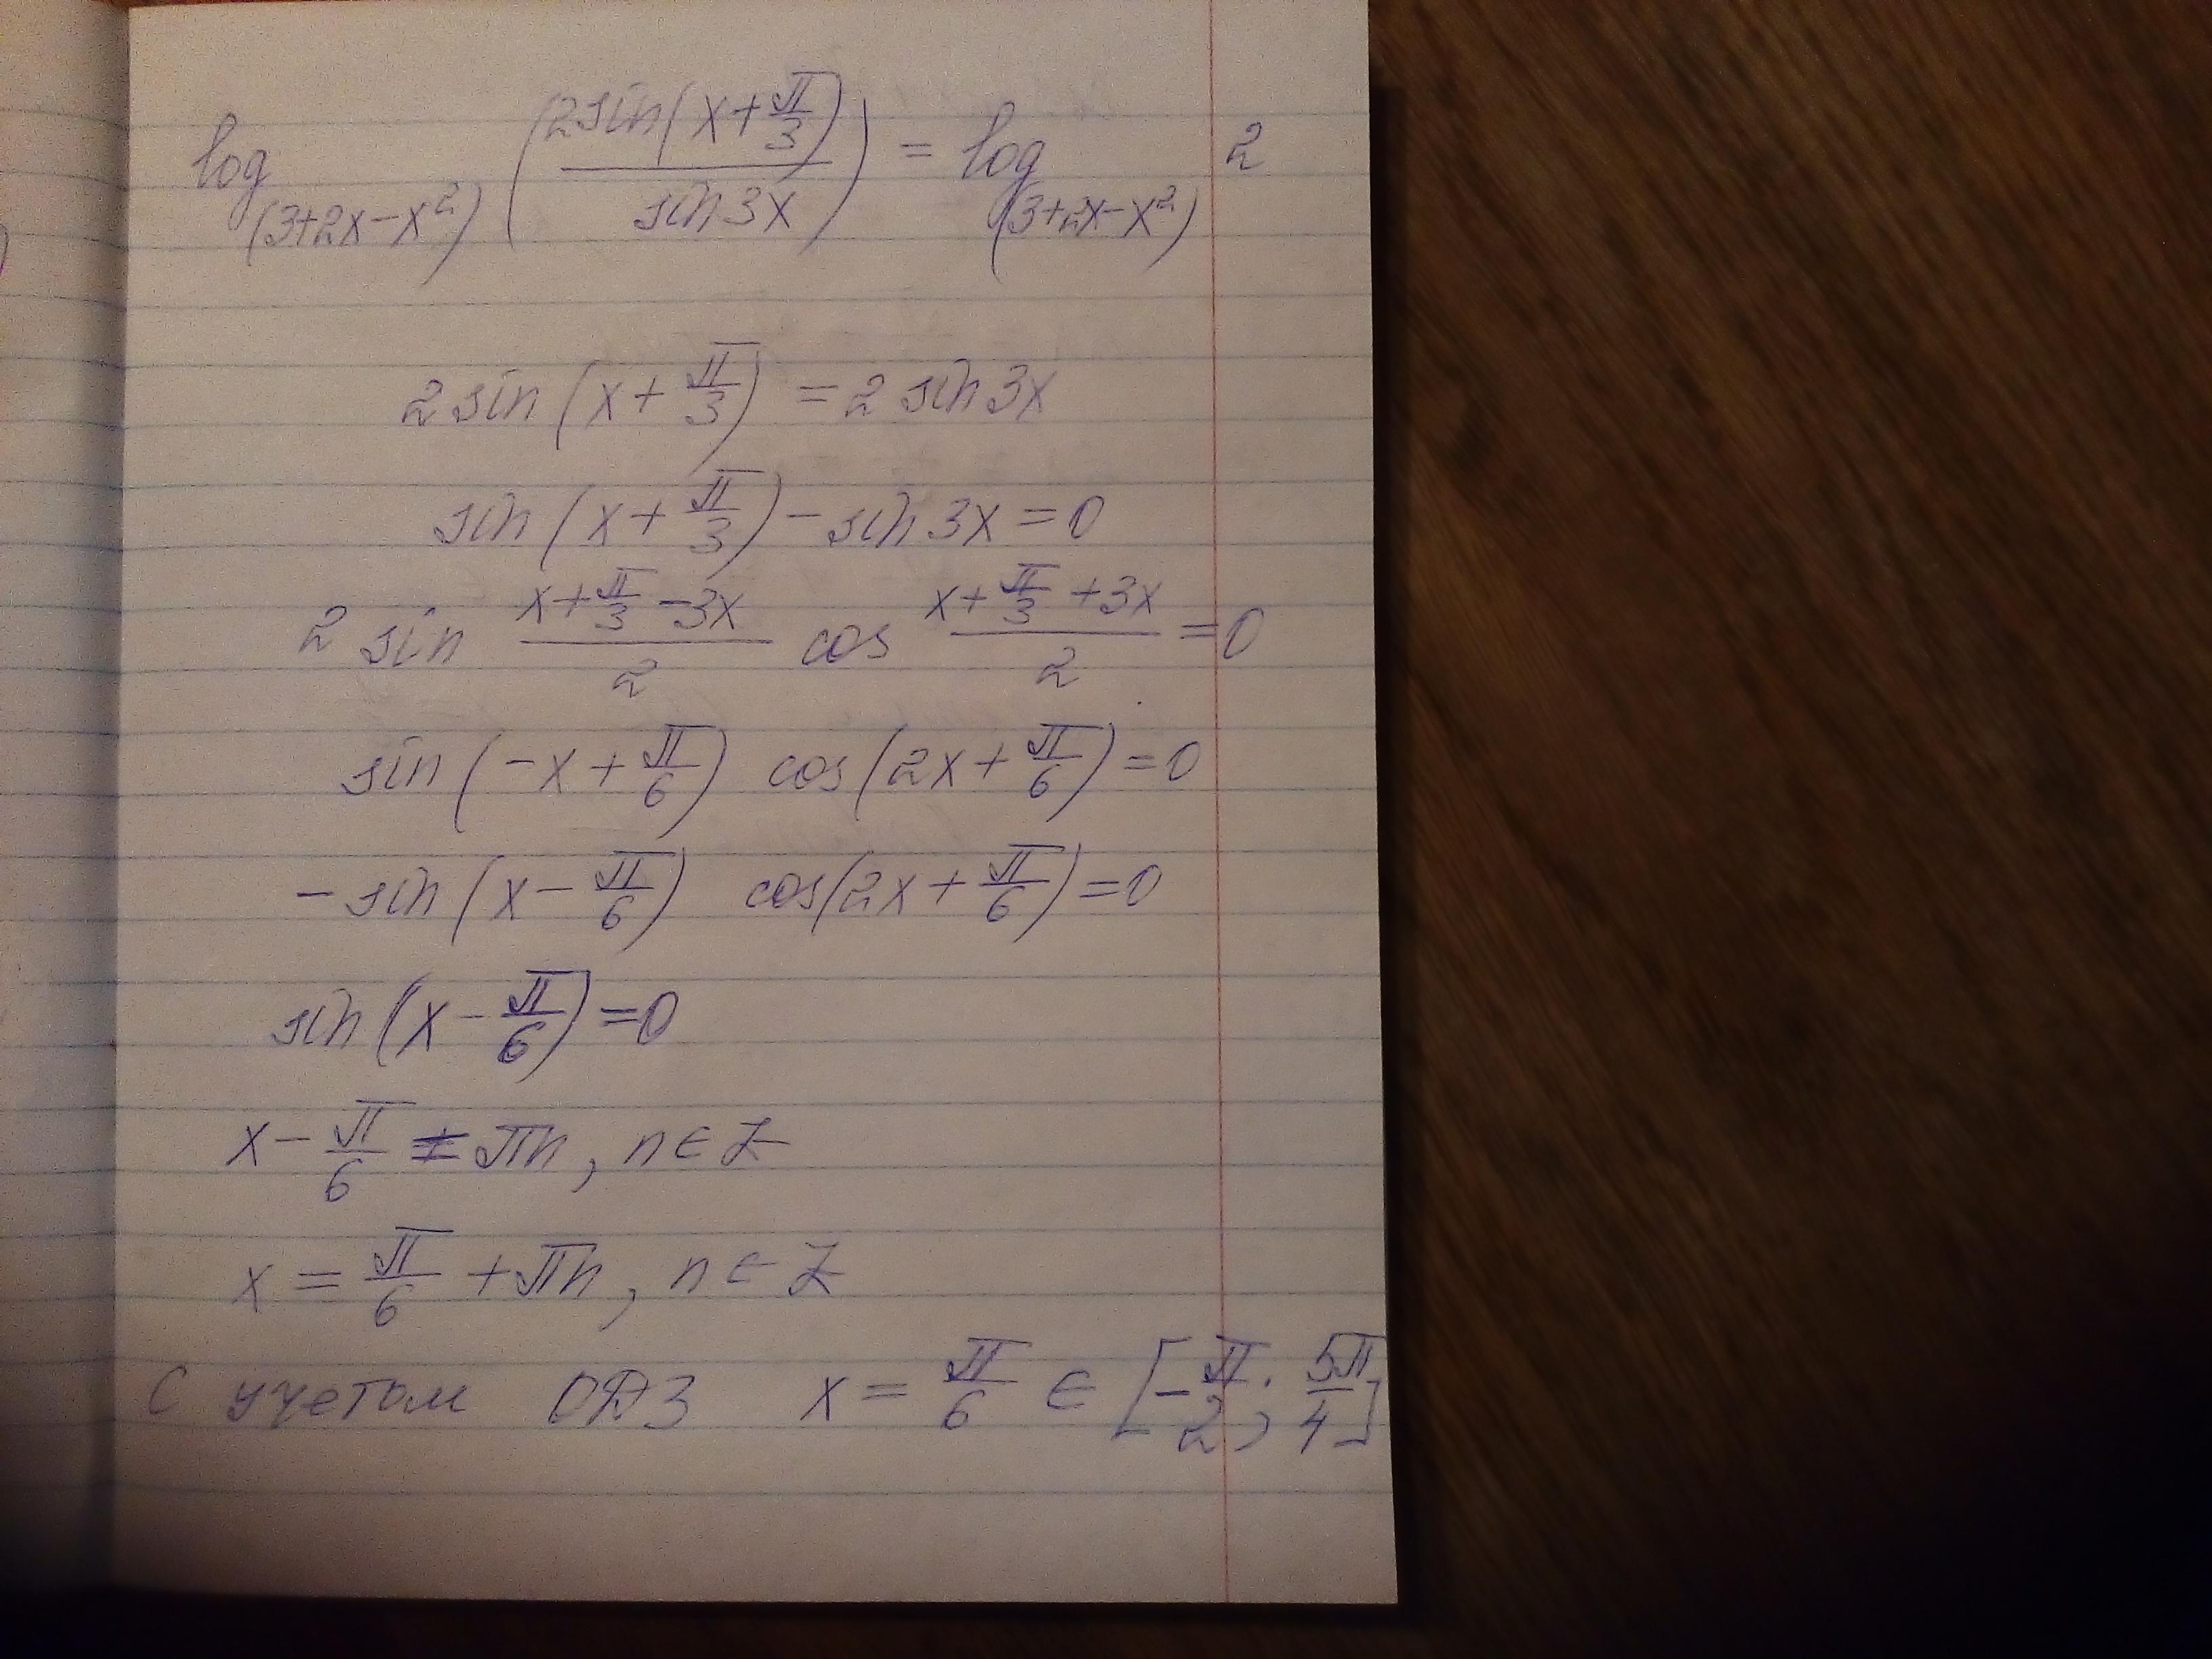 log_(3+2x-x²) (2sin(x+π/3)/sin3x) = log_(3+2x-x²) 2
2 sin(x+π/3) = 2 sin3x
sin(x+π/3) - sin3x = 0
2 sin (x+π/3-3x)/2 cos (x+π/3+3x)/2 = 0
sin(-x+π/6) cos(2x+π/6) = 0
- sin(x-π/6) cos(2x+π/6) = 0
sin(x-π/6) = 0
x - π/6 = πn, n ∈ Z
x = π/6 + πn, n ∈ Z
С учетом ОДЗ x = π/6 ∈ [-π/2; 5π/4]